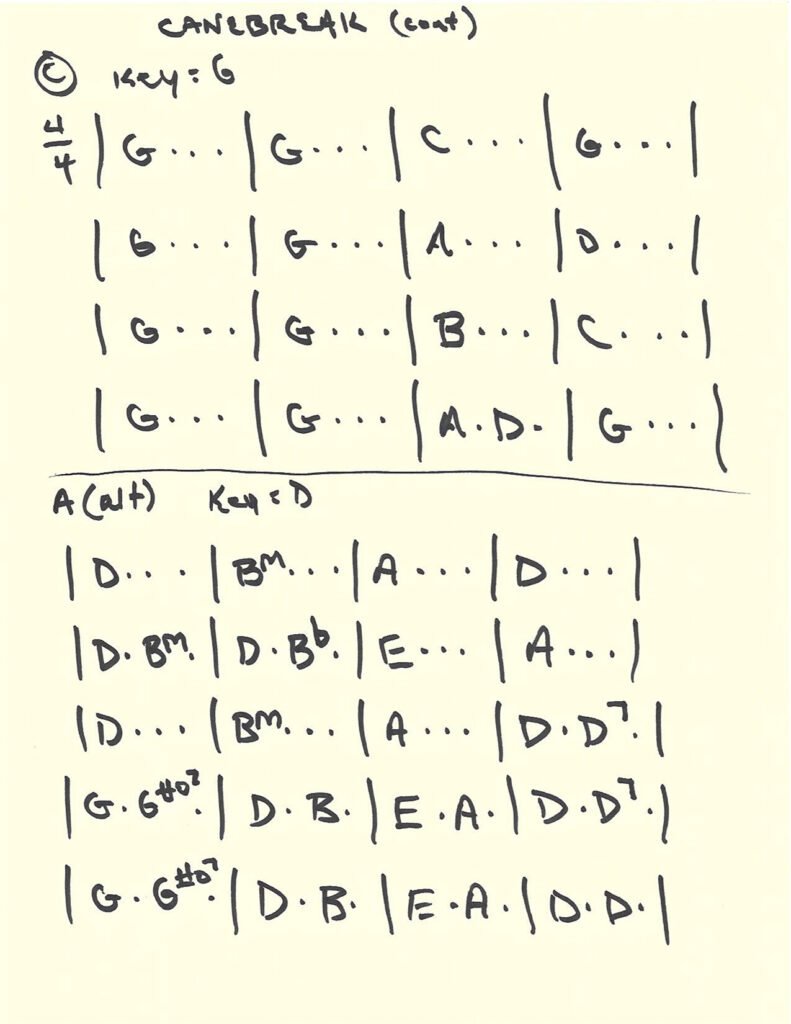 CANEBREAK (cont)
Ⓒ Key = G
4/4 | G . . . | G . . . | C . . . | G . . . |
| G . . . | G . . . | A . . . | D . . . |
| G . . . | G . . . | B . . . | C . . . |
| G . . . | G . . . | A . D . | G . . . |
A (alt) Key = D
| D . . . | Bᵐ . . . | A . . . | D . . . |
| D . Bᵐ . | D . Bᵇ . | E . . . | A . . . |
| D . . . | Bᵐ . . . | A . . . | D . D⁷ . |
| G . G#o7 . | D . B . | E . A . | D . D⁷ . |
| G . G#o7 . | D . B . | E . A . | D . D . |